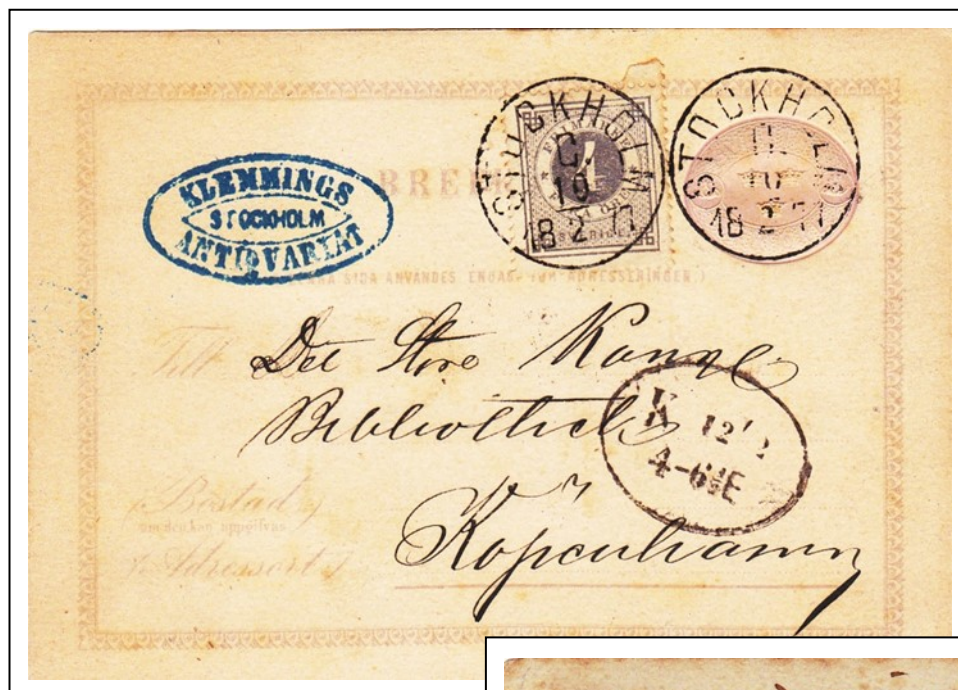 KLEMMINGS
STOCKHOLM
ANTIQVARIAT
BREF
STOCKHOLM
C.
10
18 2 77
4
SVERIGE
STOCKHOLM
10
18 2 77
SIDA ANVANDES ENDAST FÖR ADRESSERINGEN.)
Till Det Store Kongl
Bibliothek
K 12
4-6 E
(Bostad)
om den kan uppgifvas
Köpenhamn
(Adressort)